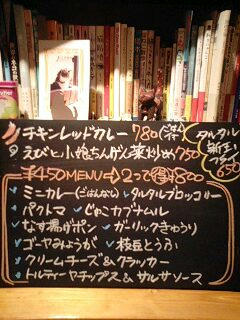 チキンレッドカレー 780 (ごはん付)
えびと小松ちんげん菜炒め 750
タルタル
新玉フライ
650
¥450MENU⇒2つで得¥800
ミニカレー(ごはんなし) タルタルブロッコリー
パクトマ じゃこカブナムル
なす揚げポン ガーリックきゅうり
ゴーヤみょうが 枝豆とうふ
クリームチーズ&クラッカー
トルティーヤチップス&サルサソース